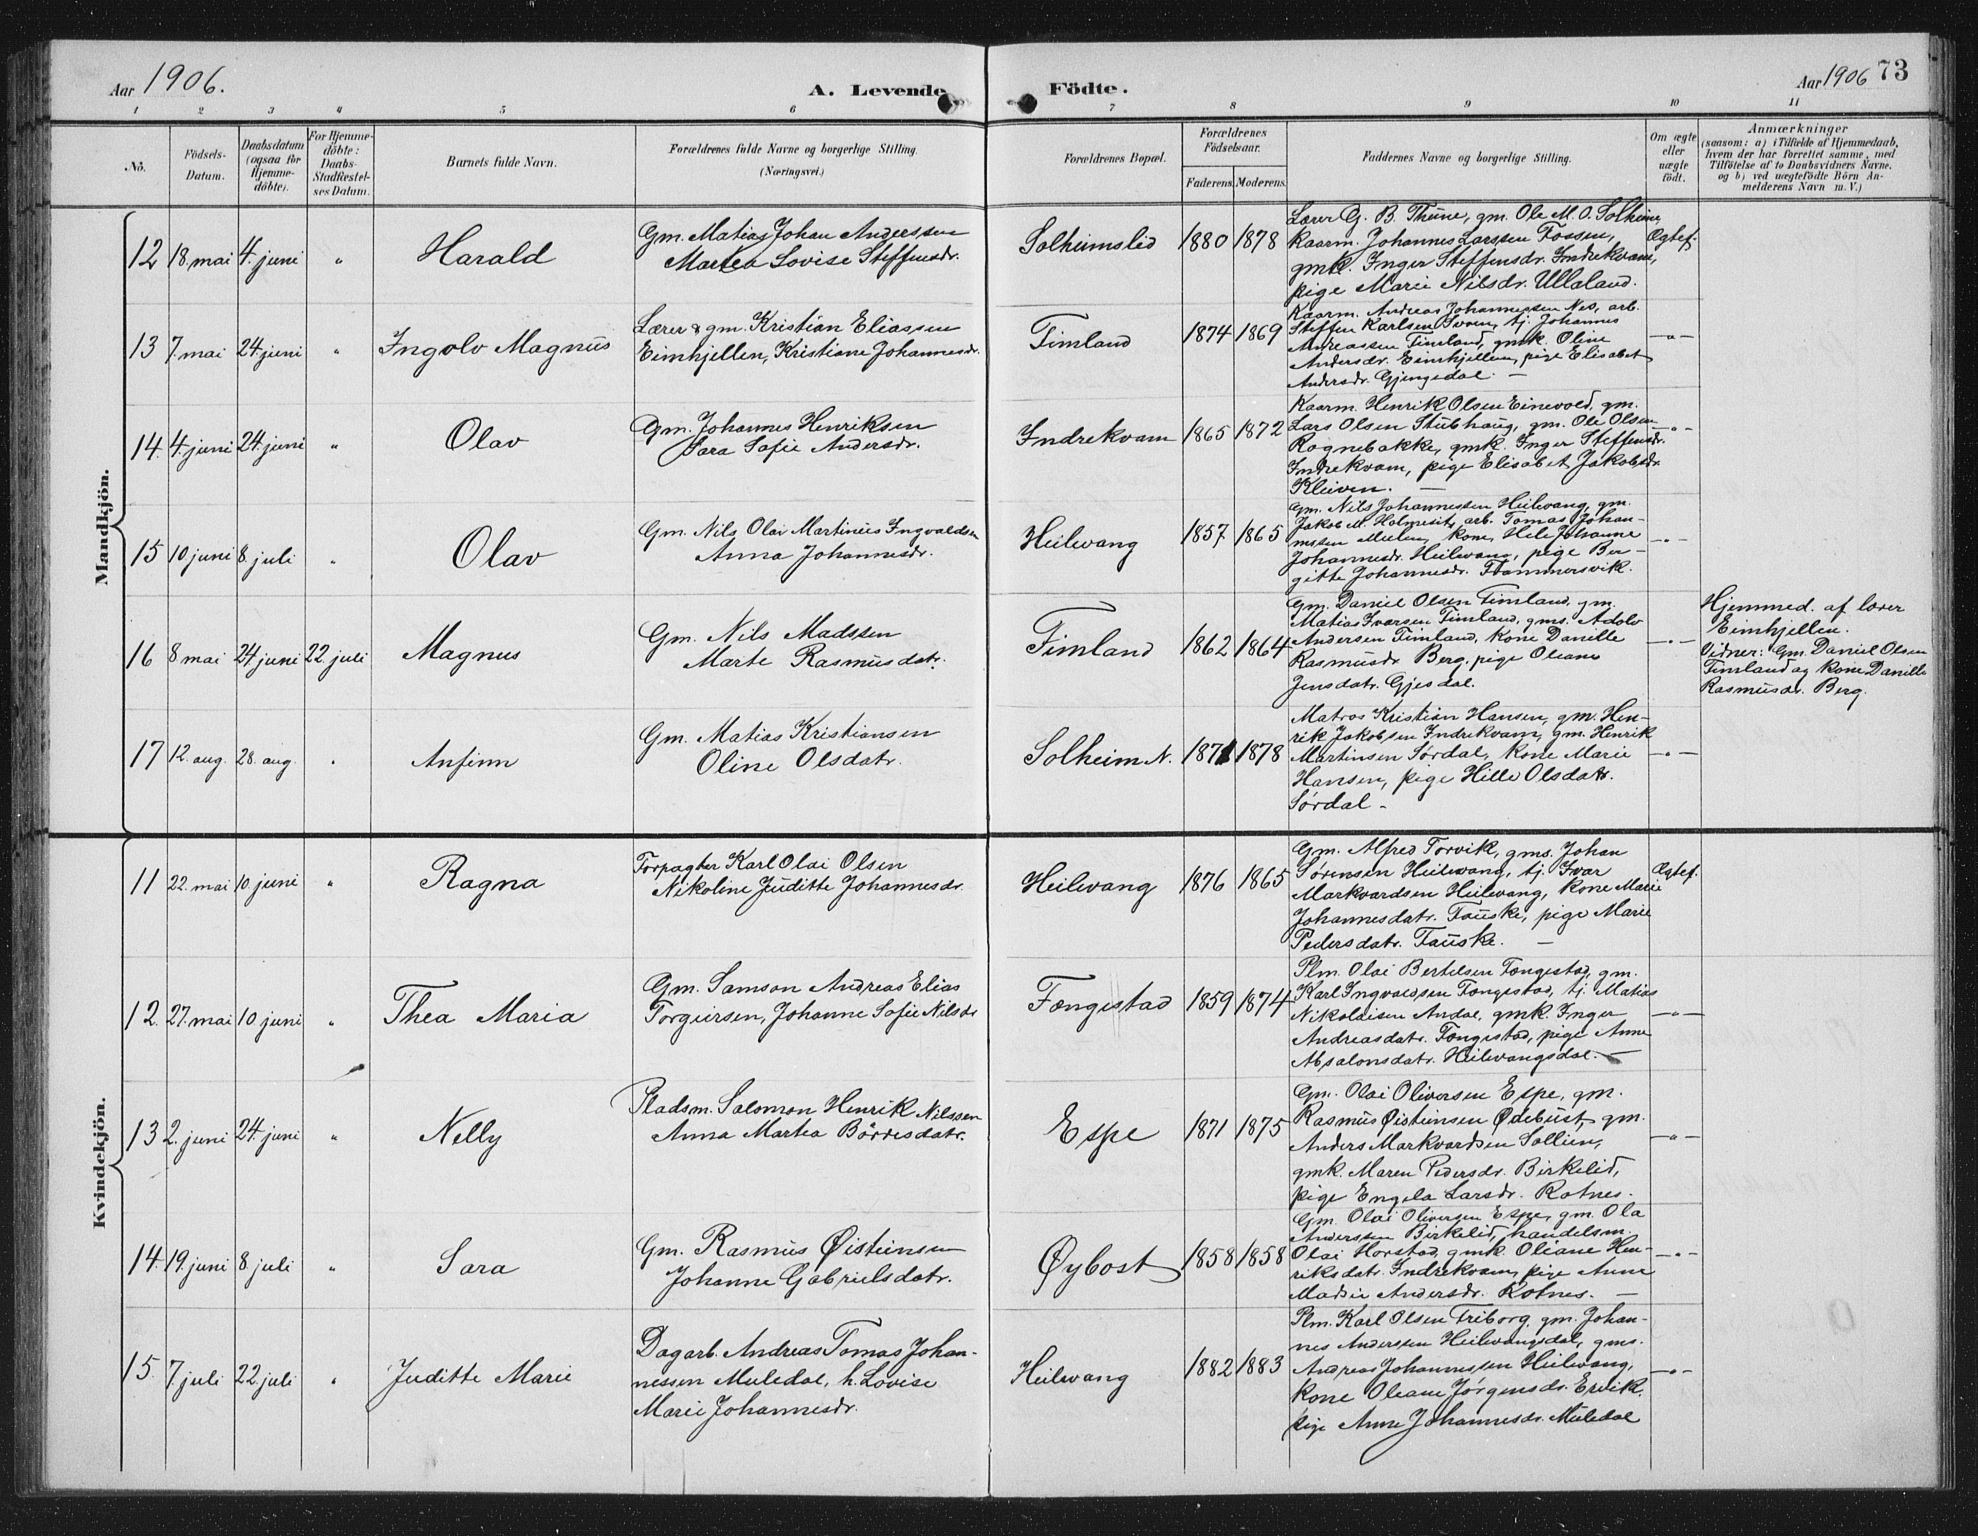 Aar 1906.
A. Levende
Födte.
Aar 1906 73
1 2 3 4 5 6 7 8 9 10 11
No.
Födsels-
Datum.
Daabsdatum
(ogsaa for
Hjemme-
döbte).
For Hjemme-
döbte:
Daabs-
Stadfestel-
ses Datum.
Barnets fulde Navn.
Forældrenes fulde Navne og borgerlige Stilling.
(Næringsvei.)
Forældrenes Bopæl.
Forældrenes
Födselsaar.
Faderens. Moderens.
Faddernes Navne og borgerlige Stilling.
Om ægte
eller
uægte
födt.
Anmærkninger
(saasom: a) i Tilfælde af Hjemmedaab,
hvem der har forrettet samme, med
Tilföielse af to Daabsvidners Navne,
og b) ved uægtefödte Börn An-
melderens Navn m. V.)
Mandkjön.
12 18. mai 4. juni " Harald
Gm. Matias Johan Anderssen
Martea Lovise Steffensdr.
Solheimslid 1880 1878
Lærer G. B. Thune, gm. Ole M. O. Solheim,
Kaarm. Johannes Larssen Fossen,
gmk. Inger Steffensdr. Indrekvam,
pige Marie Nilsdr. Ullaland.
Ægtef.
13 7. mai 24. juni " Ingolv Magnus
Lærer & gm. Kristian Eliassen
Eimhjellen, Kristiane Johannesdr.
Timland 1874 1869
Kaarm. Andreas Johannessen Nes, arb.
Steffen Karlsen Svoen, tj. Johannes
Andreassen Timland, gmk. Oline
Andersdr. Eimhjellen, pige Elisabet
Andersdr. Gjengedal. —
—"—
14. 4. juni 24. juni " Olav
Gm. Johannes Henriksen
Sara Sofie Andersdr.
Indrekvam 1865 1872
Kaarm. Henrik Olsen Einevold, gm.
Lars Olsen Stubhaug, gm. Ole Olsen
Rognebakke, gmk. Inger Steffensdr.
Indrekvam, pige Elisabet Jakobsdr.
Kleiven. —
—"—
15 10 juni 8. juli " Olav
Gm. Nils Olai Martinus Ingvaldsen
Anna Johannesdr.
Heilevang 1857 1865
Gm. Nils Johannessen Heilevang, gm.
Jakob M. Holmesit, arb. Tomas Johan-
nessen, kone
Johannesdr. Heilevang, pige Ber-
gitte Johannesdr. Flammersvik.
—"—
16 8 mai 24 juni 22. juli Magnus
Gm. Nils Madssen
Marte Rasmusdatr.
Timland 1862 1864
Gm. Daniel Olsen Timland, gm.
Matias Ivarsen Timland, gms. Adolv
Andersen Timland, kone Danille
Rasmusdr. Berg, pige Oliane
Jensdatr. Gjesdal.
—"—
Hjemmed. af lærer
Eimhjellen.
Vidner: Gm. Daniel Olsen
Timland og kone Danille
Rasmusdr. Berg.
17 12. aug. 28. aug. " Anfinn
Gm. Matias Kristiansen
Oline Olsdatr.
Solheim N. 1871 1878
Matros Kristian Hansen, gm. Hen-
rik Jakobsen Indrekvam, gm. Henrik
Martinsen Sørdal, kone Marie
Hansen, pige Hille Olsdatr.
Sørdal —
—"—
Kvindekjön.
11 22. mai 10. juni " Ragna
Forpagter Karl Olai Olsen
Nikoline Juditte Johannesdr.
Heilevang 1876 1865
Gm. Alfred Torvik, gms. Johan
Sørensen Heilevang, tj. Ivar
Markvardsen Heilevang, kone Marie
Johannesdatr. Fauske, pige Marie
Pedersdatr. Fauske. —
Ægtef.
12. 27. mai 10 juni " Thea Maria
Gm. Samson Andreas Elias
Torgersen, Johanne Sofie Nilsdr.
Fængestad 1859 1874
Plm. Olai Bertelsen Fængestad, gm.
Karl Ingvaldsen Fængestad, tj. Matias
Nikolaisen Andal, gmk. Inger
Andreasdatr. Fængestad, pige Anne
Absalonsdatr. Heilevangsdal. —
—"—
13 2. juni 24. juni " Nelly
Pladsm. Salomon Henrik Nilssen
Anna Martea Børresdatr.
Espe 1871 1875
Gm. Olai Oliversen Espe, gm.
Rasmus Øisteinsen Øiebust, gm.
Anders Markvardsen Sollien,
gmk. Maren Pedersdr. Birkelid,
pige Engela Larsdr. Rotnes.
—"—
14. 19. juni 8. juli " Sara
Gm. Rasmus Øisteinsen
Johanne Gabrielsdatr.
Øybost 1858 1858
Gm. Olai Oliversen Espe, gm. Ola
Anderssen Birkelid, handelsm.
Olai Horstad, gmk. Oliane Hen-
riksdatr. Indrekvam, pige Anne
Madsie Andersdr. Rotnes. —
—"—
15. 7 juli 22. juli " Juditte Marie
Dagarb. Andreas Tomas Johan-
nessen Muledal, h. Lovise
Marie Johannesdr.
Heilevang 1882 1883
Plm. Karl Olsen Friborg, gm. Johan-
nes Anderssen Heilevangsdal, gms.
Andreas Johannessen Heilevang,
kone Oleane Jørgensdr. Ervik,
pige Anne Johannesdr. Muledal
—"—